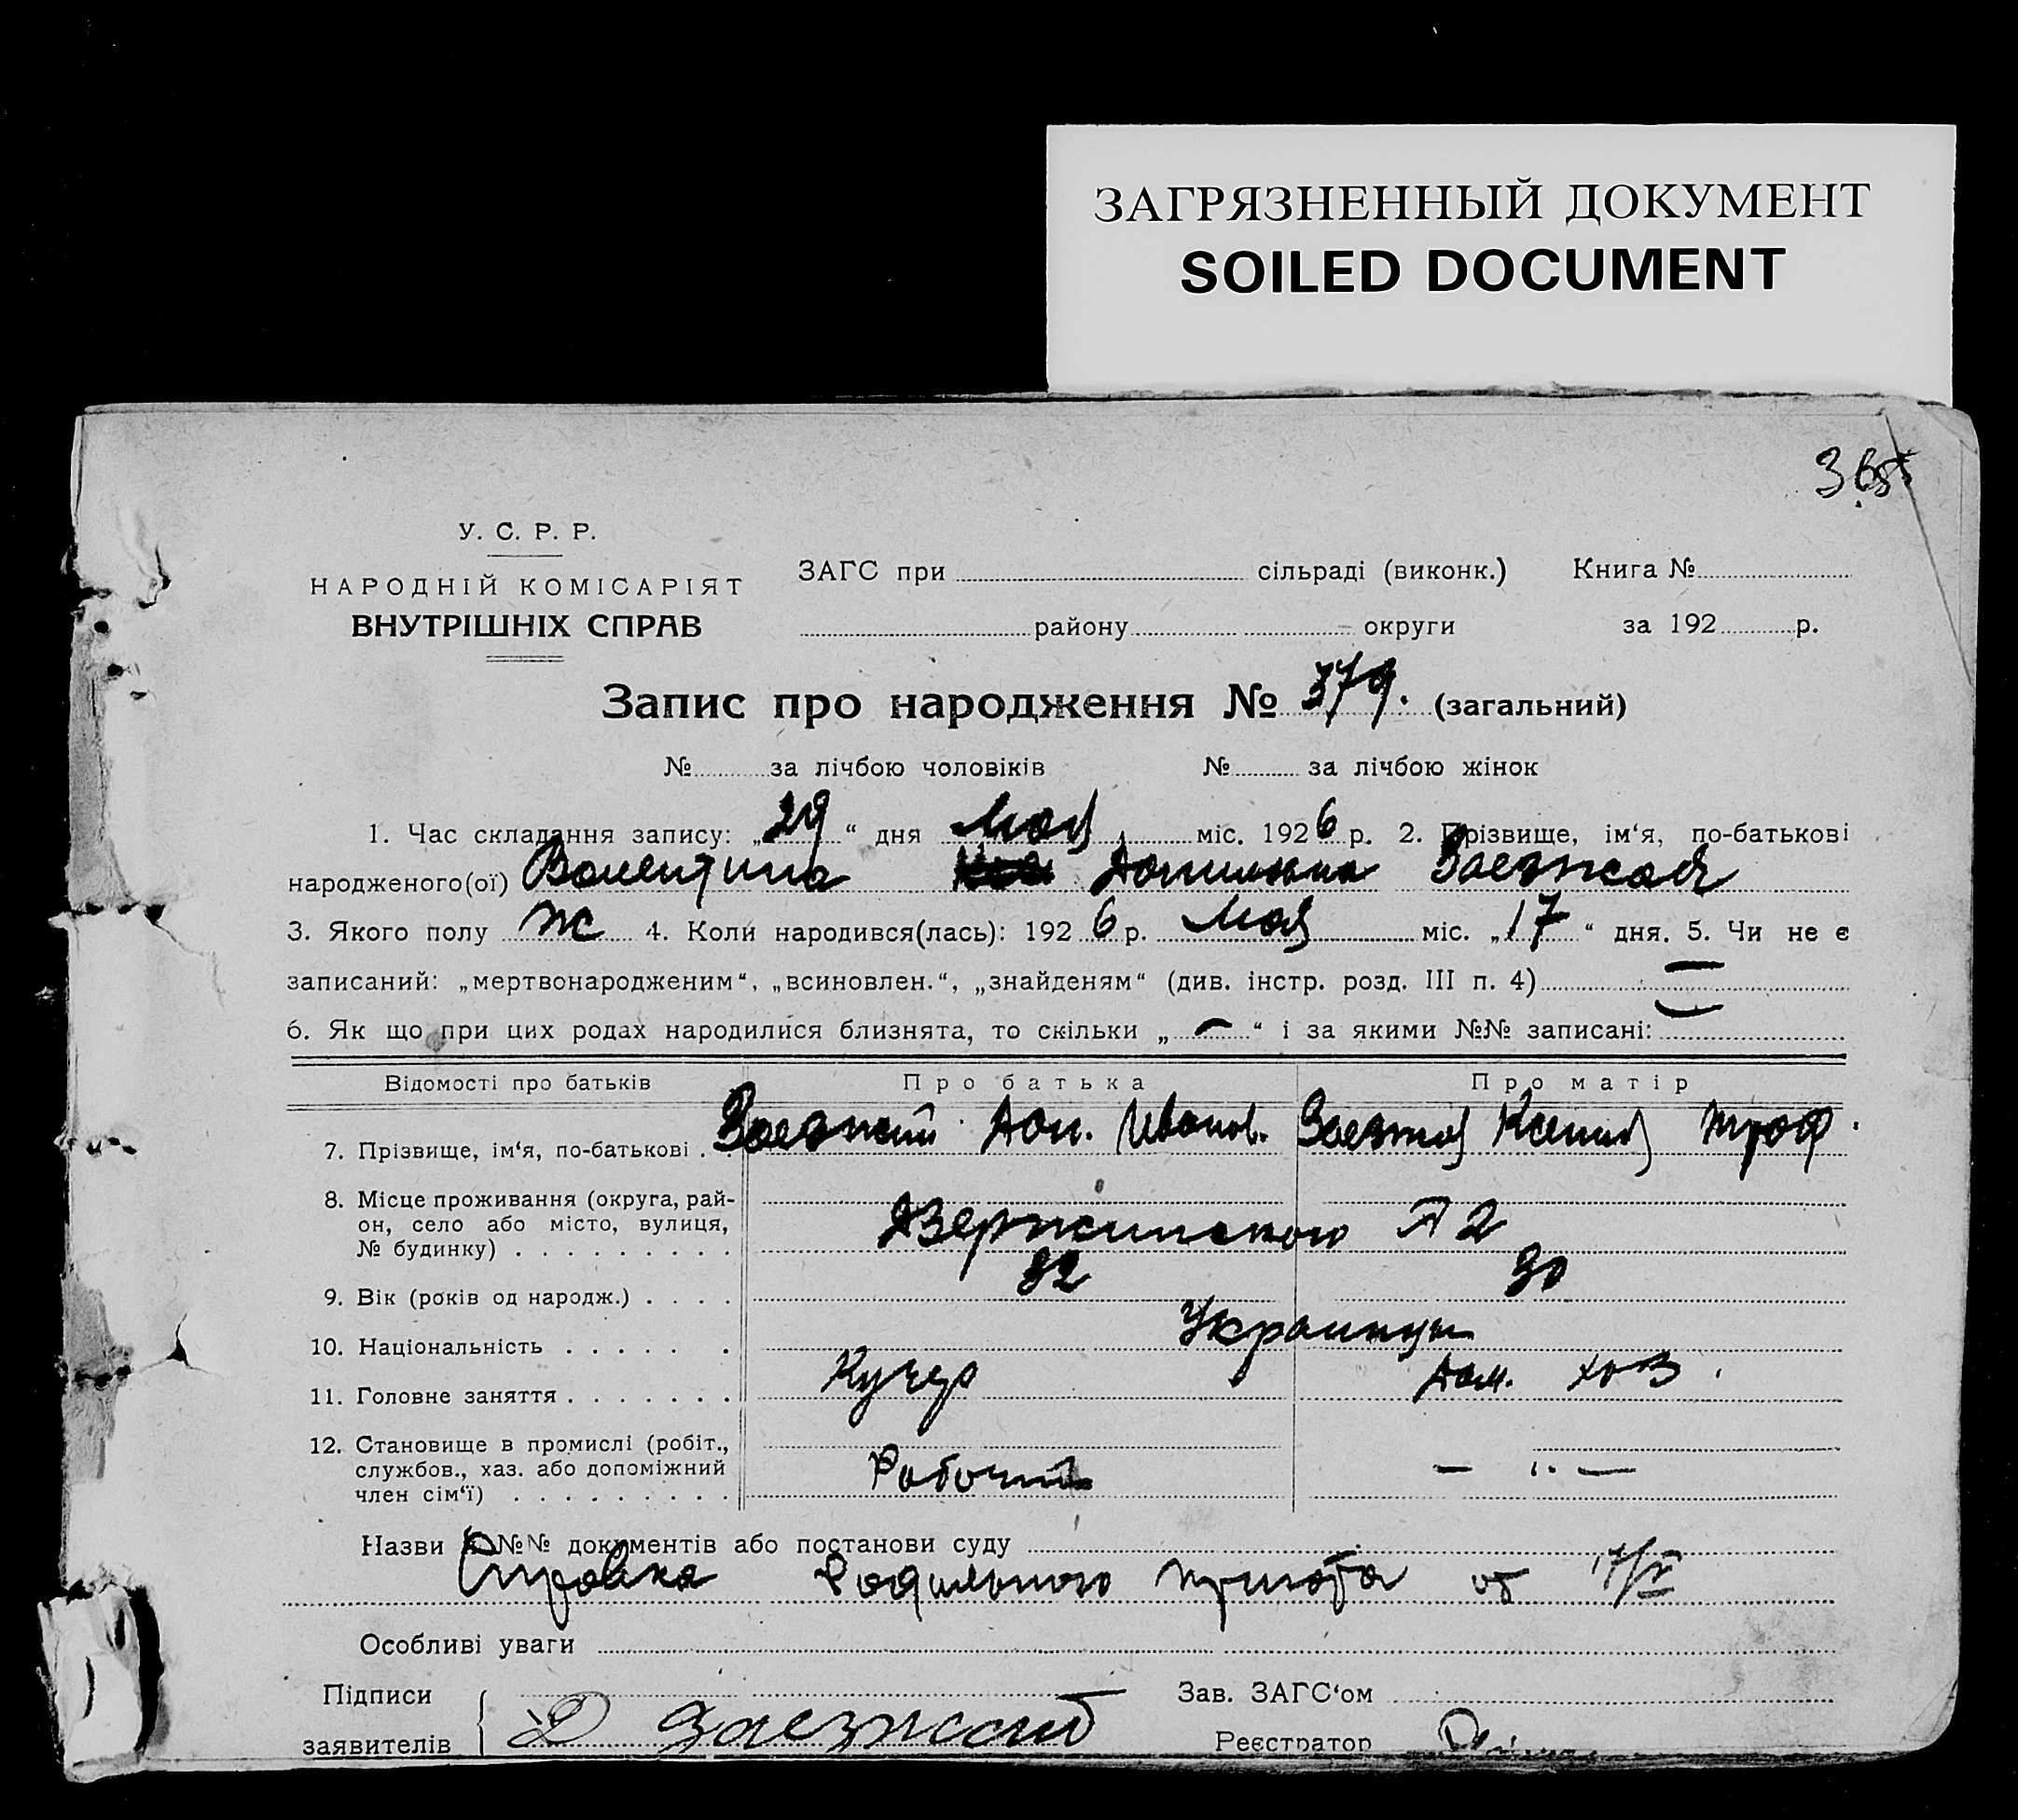 ЗАГРЯЗНЕННЫЙ ДОКУМЕНТ
SOILED DOCUMENT
У. С. Р. Р.
НАРОДНІЙ КОМІСАРІЯТ
ВНУТРІШНІХ СПРАВ
ЗАГС при сільраді (виконк.) Книга №
району округи за 192 р.
Запис про народження № 379. (загальний)
№ за лічбою чоловіків № за лічбою жінок
1. Час складання запису: „29“ дня Мая міс. 1926 р. 2. Прізвище, ім‘я, по-батькові
народженого(ої) Валентина Заезжая
3. Якого полу ж 4. Коли народився(лась): 1926 р. Мая міс. „17“ дня. 5. Чи не є
записаний: „мертвонародженим“, „всиновлен.“, „знайденям“ (див. інстр. розд. III п. 4) —
6. Як що при цих родах народилися близнята, то скільки „—“ і за якими №№ записані: —
Відомості про батьків Про батька Про матір
7. Прізвище, ім‘я, по-батькові . . Заезжий Иванов. Ксения Троф.
8. Місце проживання (округа, рай-
он, село або місто, вулиця,
№ будинку) . . . . . . . . . Дзержинского 2
9. Вік (років од народж.) . . . . 32 30
10. Національність . . . . . . Украинцы
11. Головне заняття . . . . . . . Кучер Дом. хоз.
12. Становище в промислі (робіт.,
службов., хаз. або допоміжний
член сім‘ї) . . . . . . . . . Рабочий — „ —
Назви й №№ документів або постанови суду
Справка Родильного приюта от 17/V
Особливі уваги
Підписи
заявителів Д Заезжий
Зав. ЗАГС‘ом
Реєстратор